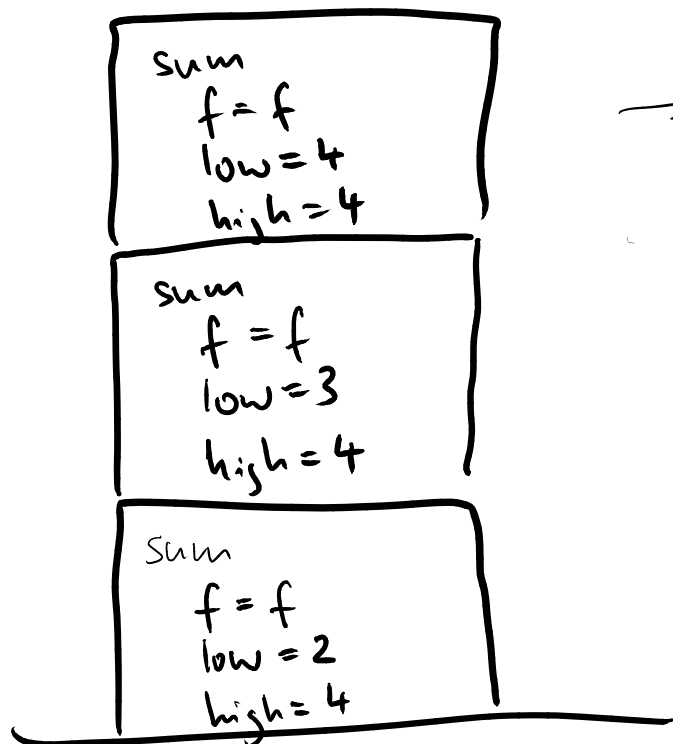 sum
f = f
low = 4
high = 4
sum
f = f
low = 3
high = 4
sum
f = f
low = 2
high = 4